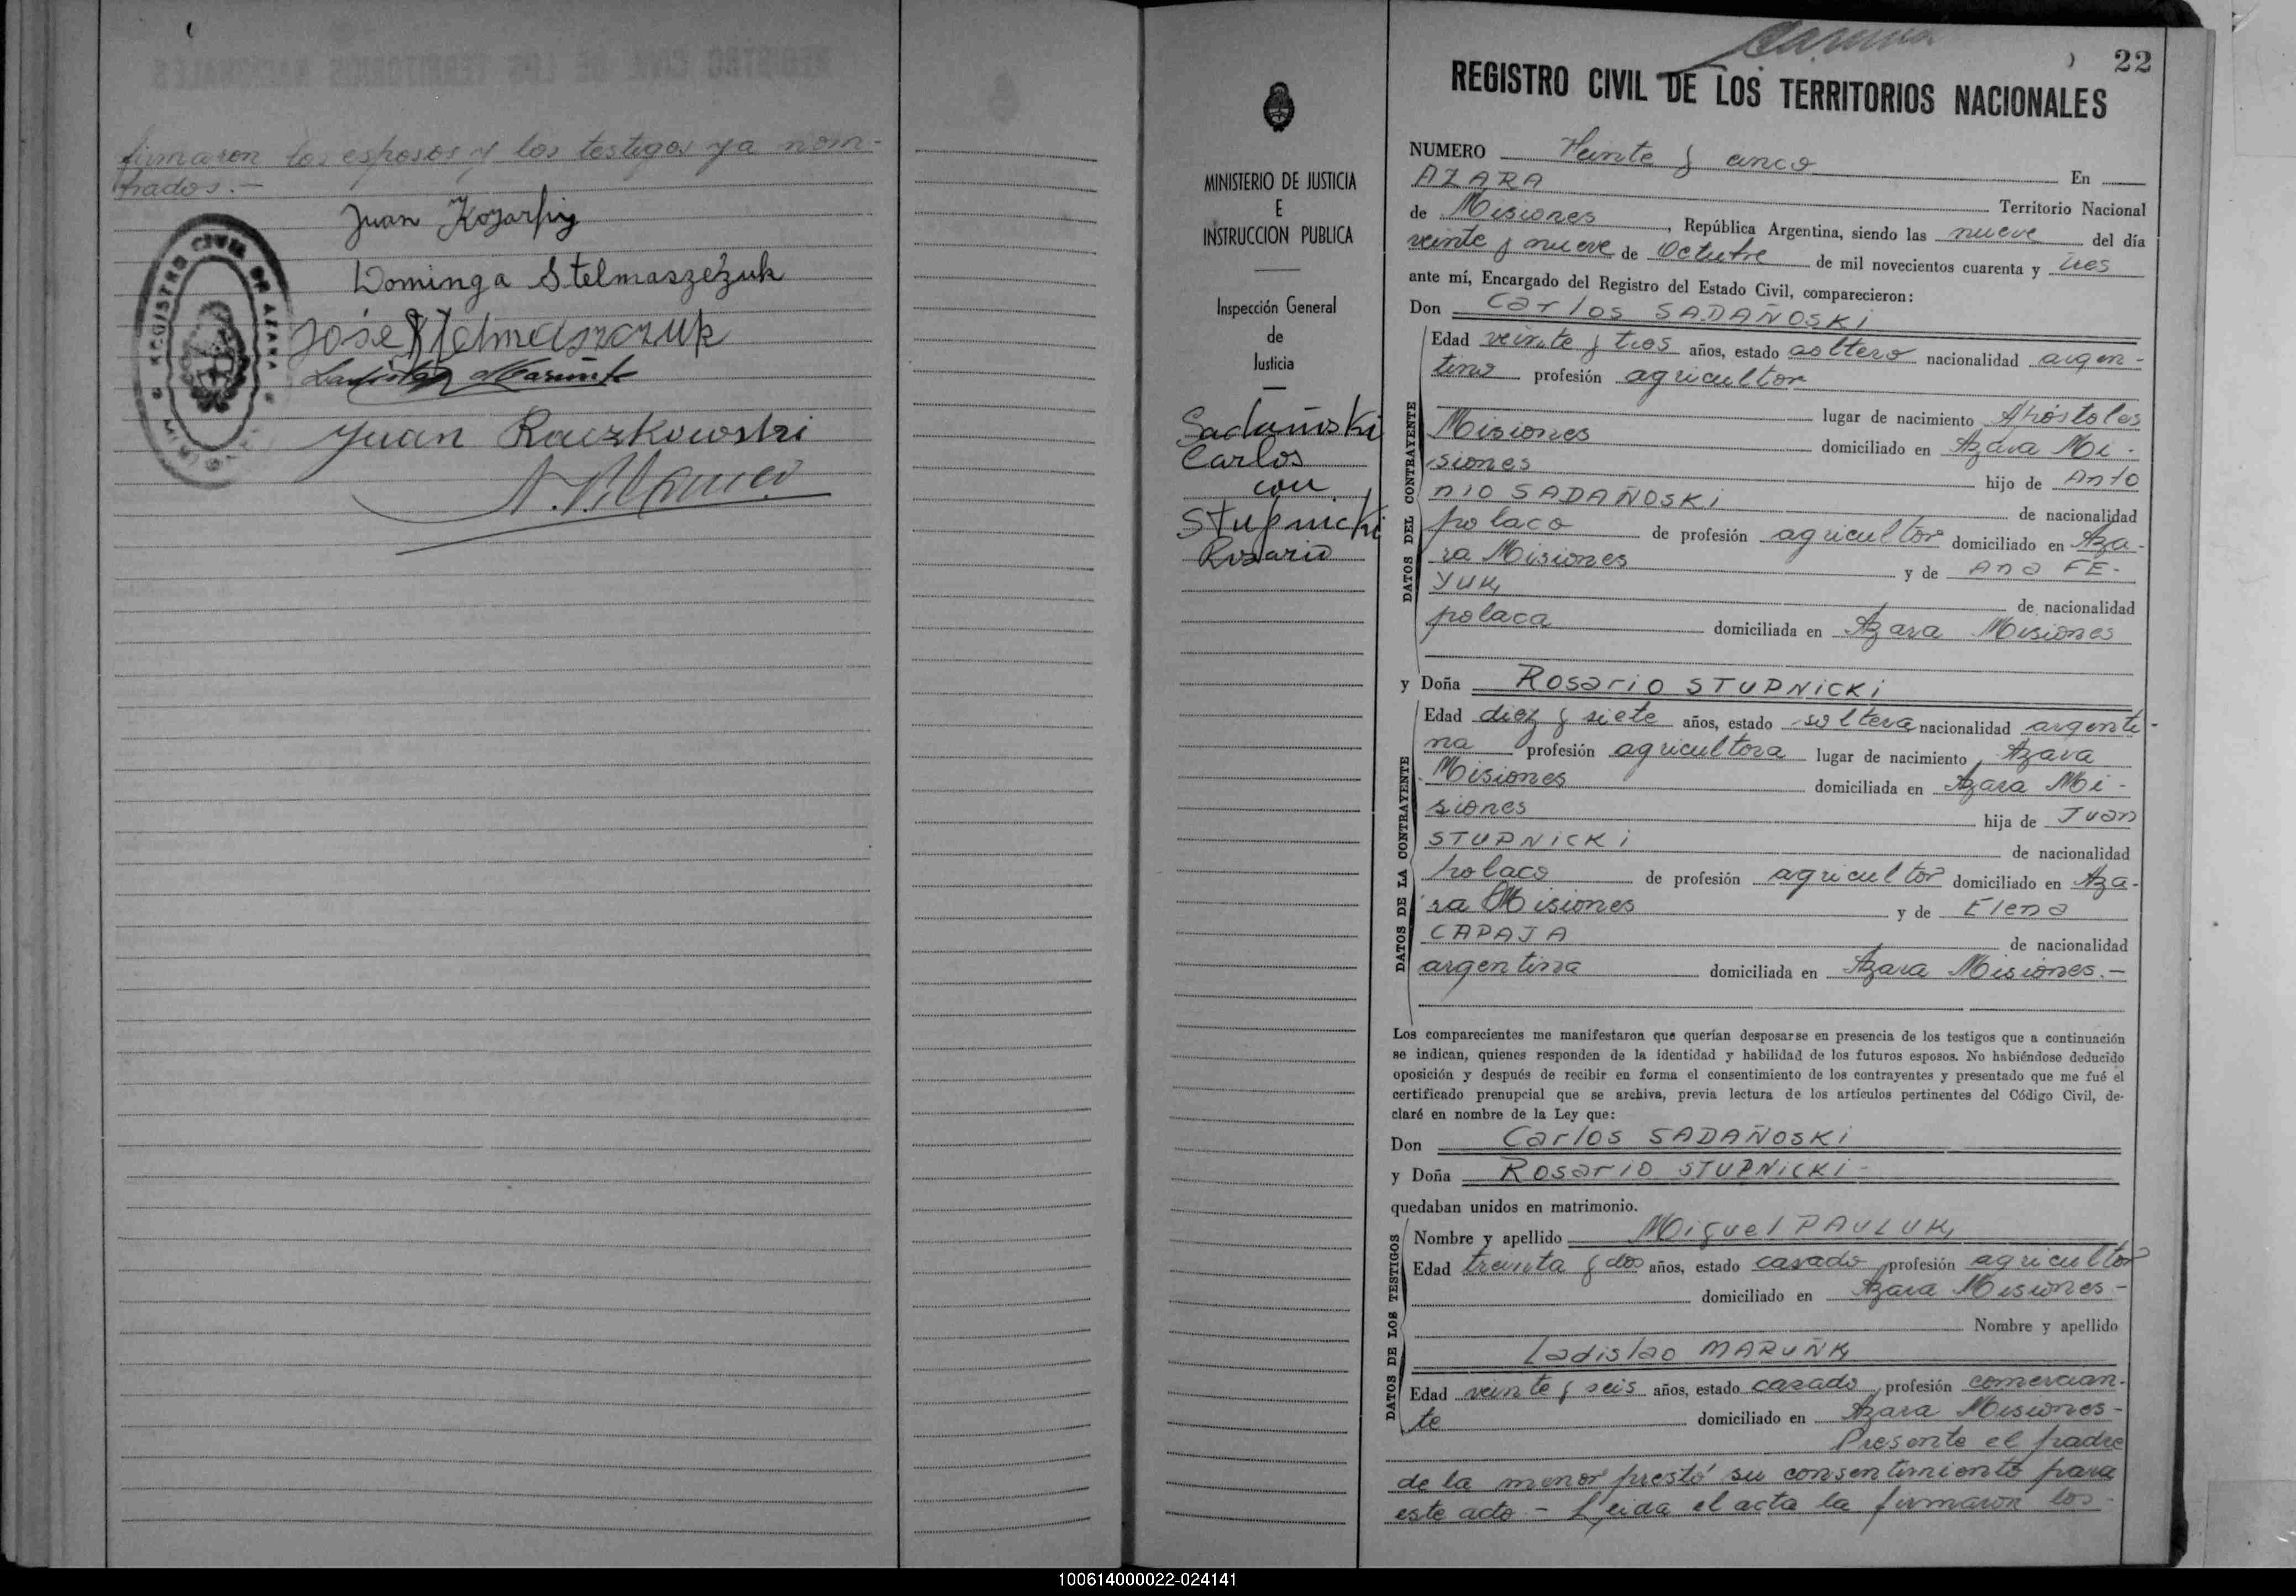 firmaron los esposos y los testigos ya nom-
brados.-
Juan
Dominga Stelmaszczuk
José Stelmaszczuk
Juan Raczkowski
REGISTRO CIVIL DE AZARA
MINISTERIO DE JUSTICIA
E
INSTRUCCION PUBLICA
Inspección General
de
Justicia
Sadañoski
Carlos
con
Stupnicki
Rosario
22
REGISTRO CIVIL DE LOS TERRITORIOS NACIONALES
NUMERO Veinte y cinco En
AZARA Territorio Nacional
de Misiones, República Argentina, siendo las nueve del día
veinte y nueve de Octubre de mil novecientos cuarenta y tres
ante mí, Encargado del Registro del Estado Civil, comparecieron:
Don Carlos SADAÑOSKI
DATOS DEL CONTRAYENTE
Edad veinte y tres años, estado soltero nacionalidad argen-
tino profesión agricultor
lugar de nacimiento Apóstoles
Misiones domiciliado en Azara Mi-
siones hijo de Anto
nio SADAÑOSKI de nacionalidad
polaco de profesión agricultor domiciliado en Aza-
ra Misiones y de Ana FE-
YUK de nacionalidad
polaca domiciliada en Azara Misiones
y Doña Rosario STUPNICKI
DATOS DE LA CONTRAYENTE
Edad diez y siete años, estado soltera nacionalidad argenti-
na profesión agricultora lugar de nacimiento Azara
Misiones domiciliada en Azara Mi-
siones hija de Juan
STUPNICKI de nacionalidad
polaco de profesión agricultor domiciliado en Aza-
ra Misiones y de Elena
CAPAJA de nacionalidad
argentina domiciliada en Azara Misiones.-
Los comparecientes me manifestaron que querían desposarse en presencia de los testigos que a continuación
se indican, quienes responden de la identidad y habilidad de los futuros esposos. No habiéndose deducido
oposición y después de recibir en forma el consentimiento de los contrayentes y presentado que me fué el
certificado prenupcial que se archiva, previa lectura de los artículos pertinentes del Código Civil, de-
claré en nombre de la Ley que:
Don Carlos SADAÑOSKI
y Doña Rosario STUPNICKI-
quedaban unidos en matrimonio.
DATOS DE LOS TESTIGOS
Nombre y apellido Miguel PAULUK
Edad treinta y dos años, estado casado profesión agricultor
domiciliado en Azara Misiones-
Nombre y apellido
Ladislao MARUÑK
Edad veinte y seis años, estado casado profesión comercian-
te domiciliado en Azara Misiones-
Presente el padre
de la menor prestó su consentimiento para
este acto - Leída el acta la firmaron los
100614000022-024141